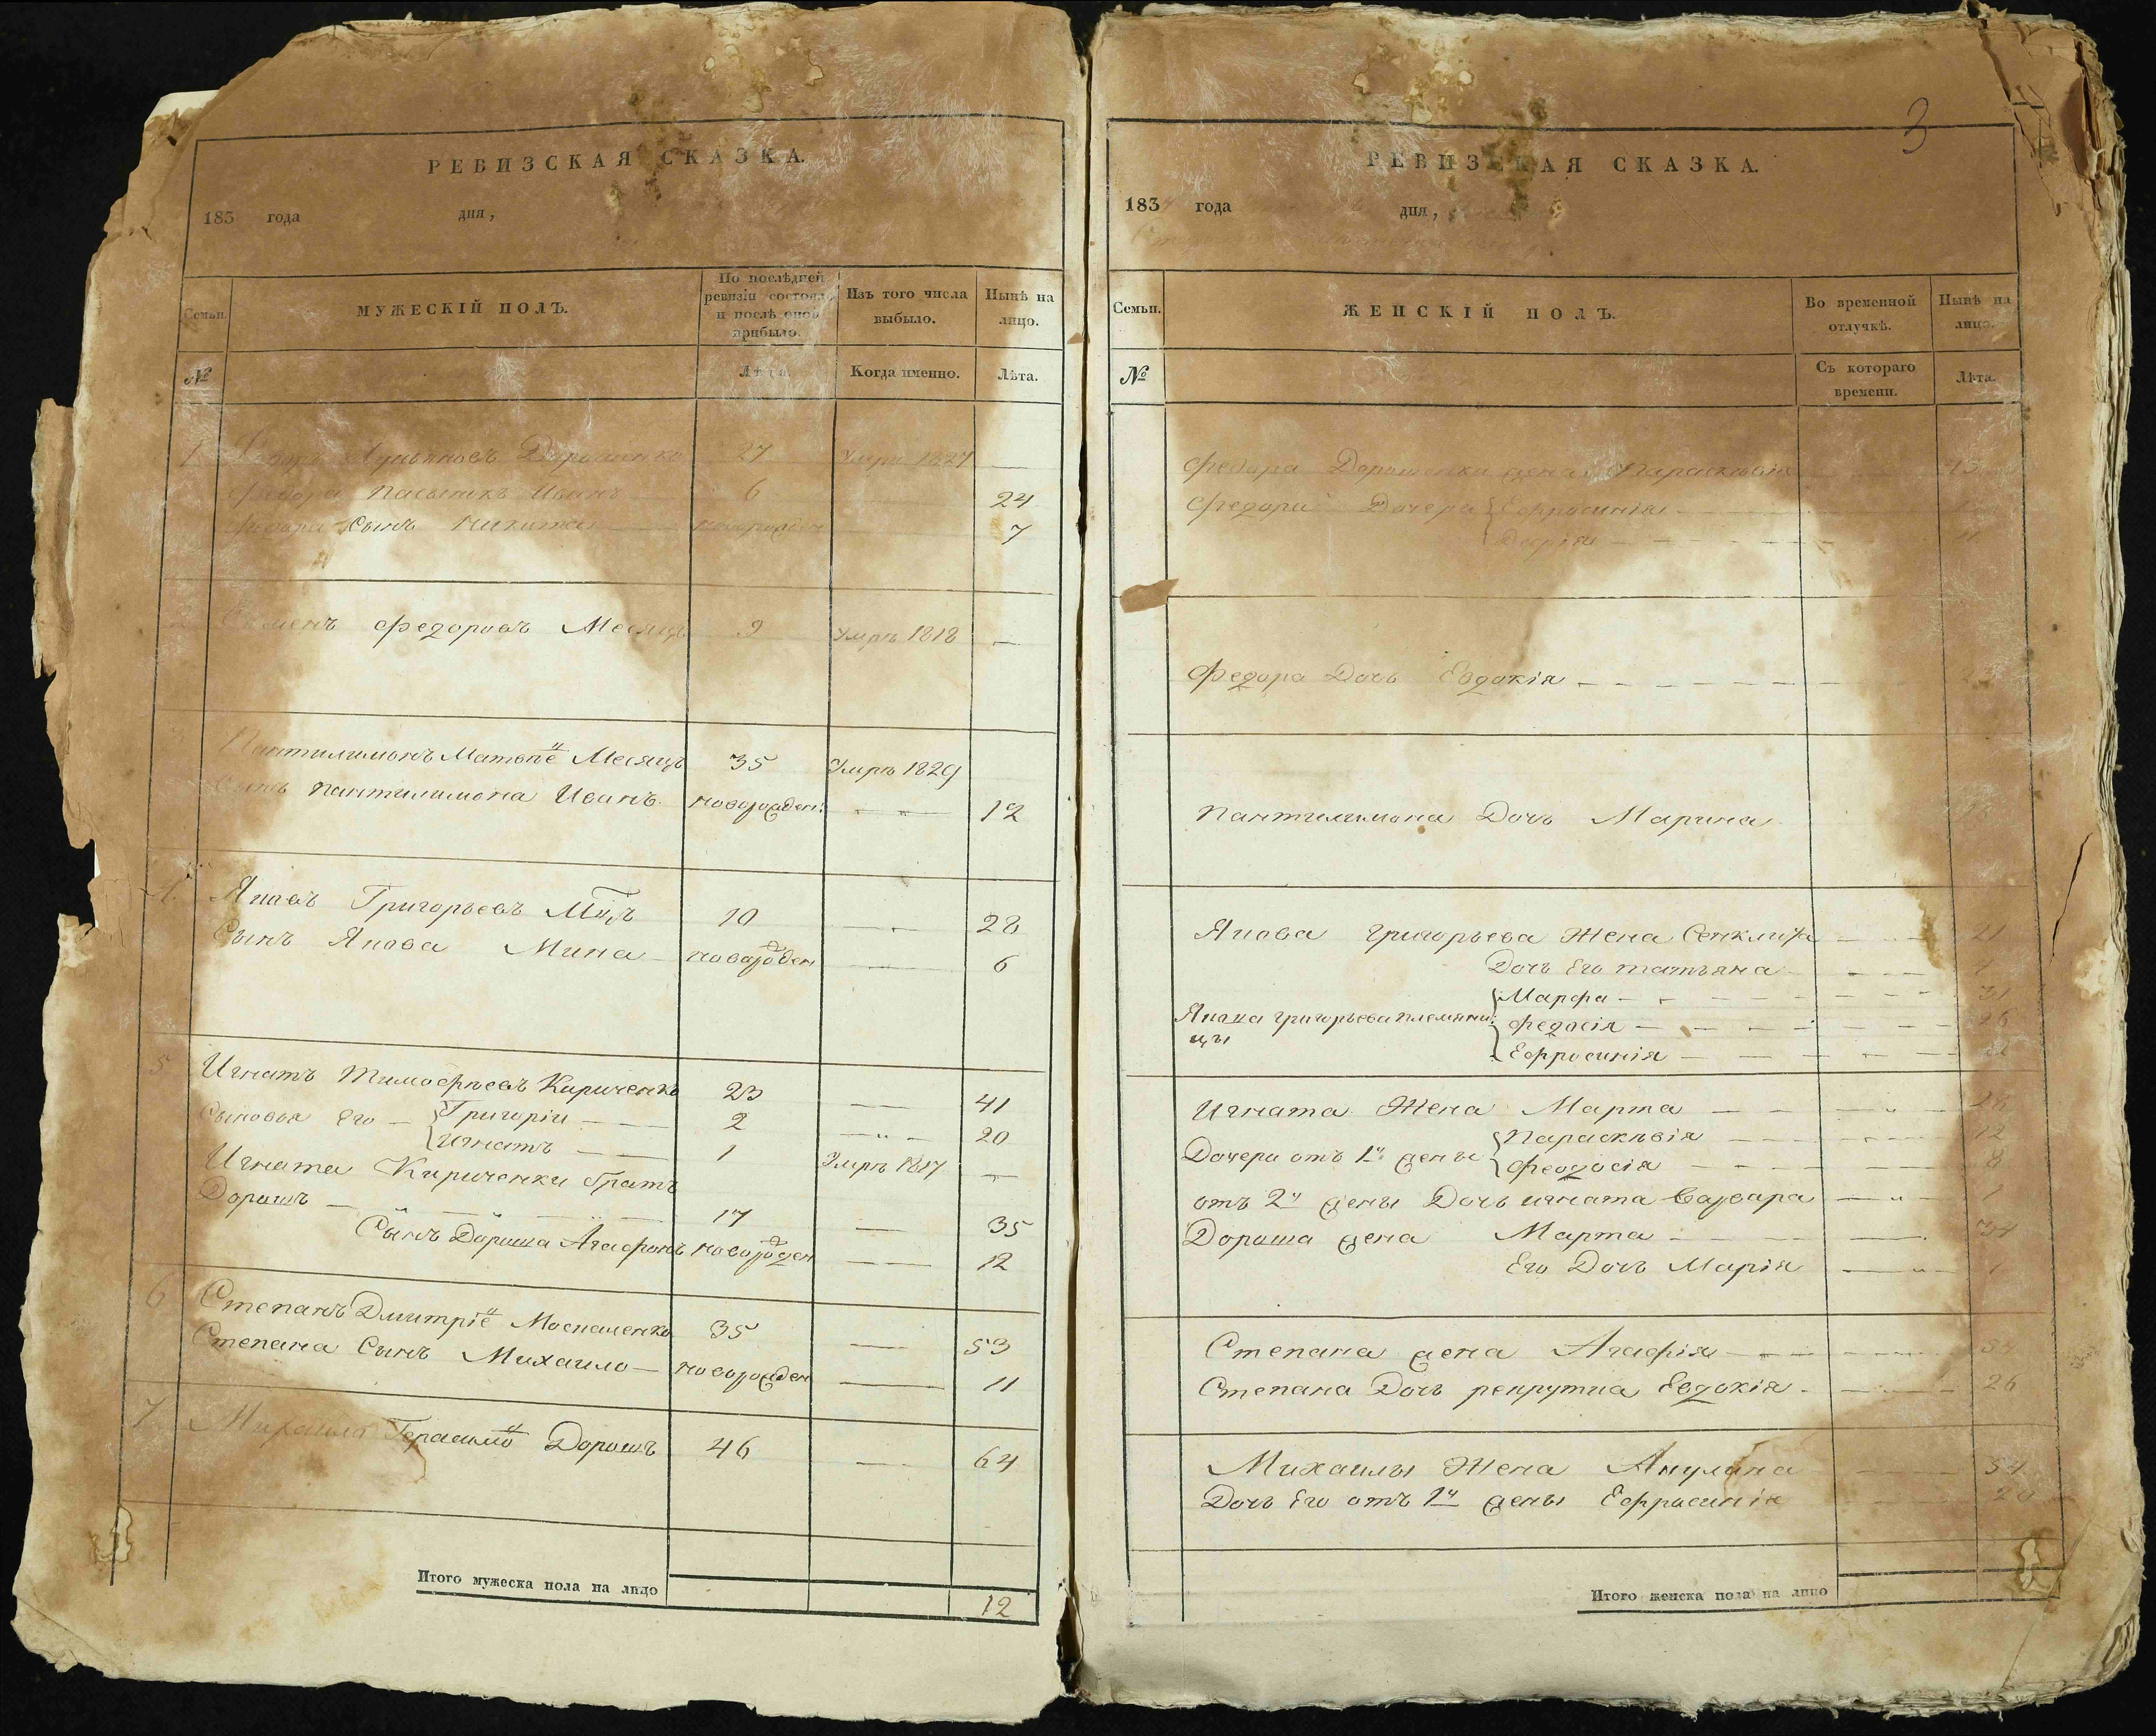 РЕВИЗСКАЯ СКАЗКА.
183 года дня,
Семьи.
МУЖЕСКІЙ ПОЛЪ.
По послѣдней ревизіи состояло и послѣ оной прибыло.
Изъ того числа выбыло.
Нынѣ на лицо.
№
Лѣта.
Когда именно.
Лѣта.
1 Дорошенко 27 Умре 1827 —
Федора Пасынкъ Иванъ 6 — 24
Федора Сынъ Никита новорожден — 7
Семенъ Федоровъ Месяцъ 9 Умрѣ 1818 —
Пантилимонъ Матвѣе Месяцъ 35 Умрѣ 1829
Сынъ Пантилимона Иванъ новорожден: 12
4. Яковъ Григорьевъ 10 — 28
Сынъ Якова Мина — новорожден — 6
5 Игнатъ Тимофѣевъ Кириченко 23 — 41
Сыновья Его — { Григоріи — 2 — 20
{ Игнатъ — 1 Умрѣ 1817 —
Игната Кириченки братъ
Дорошъ — 17 — 35
Сынъ Дороша Агафонъ новорожден — 12
6 Степанъ Дмитріе Москаленко 35 — 53
Степана Сынъ Михаило — новорожден — 11
7 Михаило Герасимо Дорошъ 46 — 64
Итого мужеска пола на лицо 12
3
РЕВИЗСКАЯ СКАЗКА.
1834 года дня,
Семьи.
ЖЕНСКІЙ ПОЛЪ.
Во временной отлучкѣ.
Нынѣ на лицо.
№
Съ котораго времени.
Лѣта.
Федора Дорошенка жена Параскѣвія
Федора Дочери { Ефросинія —
{ Дарія —
Федора Дочь Евдокія —
Пантилимона Дочь Марина
Якова Григорьева Жена Сенклита — 21
Дочь Его татьяна —
{ Марфа — 31
Якова григорьева племянни: { Федосія — 26
цы { Ефросинія —
Игната Жена Марта —
Дочери отъ 1й жены { Параскѣвія — 12
{ Феодосія — 8
отъ 2й жены Дочь игната Варвара — 1
Дороша жена Марта — 34
Его Дочь Марія — 1
Степана жена Агафія —
Степана Дочь рекрутка Евдокія — 26
Михаилы Жена Акулина — 54
Дочь Его отъ 1й жены Ефросинія
Итого женска пола на лицо